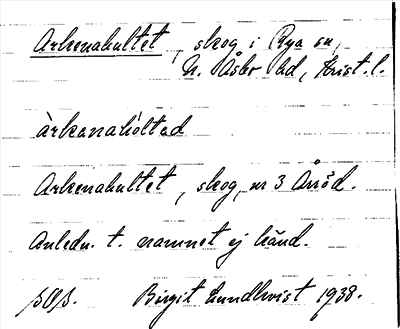 Arkenahultet, skog i Rya sn,
N. Åsbo hd, Krist. l.
àrkanahòltad
Arkenahultet, skog, nr 3 Årröd.
Anledn. t. namnet ej känd.
Birgit Lundkvist 1938.